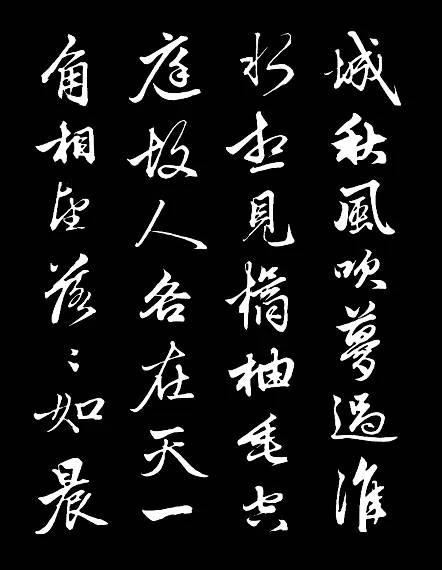 城秋風吹夢過淮
水想見橘柚垂空
庭故人各在天一
角相望落〻如晨